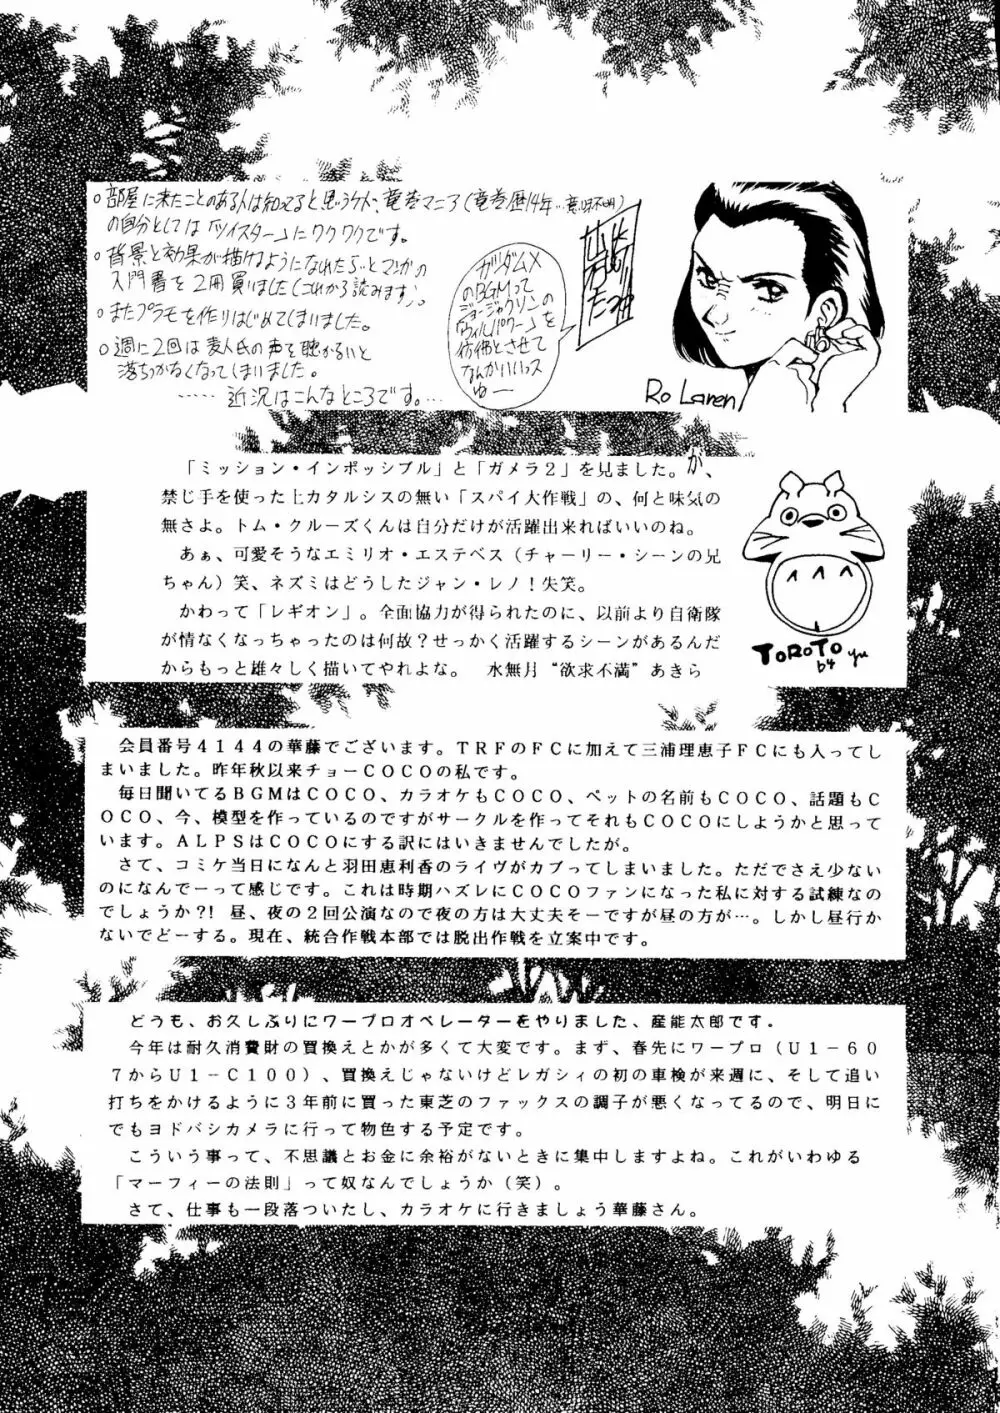 ○部屋に来たことのある人は知ってると思うケド、竜巻マニア(竜巻歴14年…意味不明)
の自分としては「ツイスター」にワクワクです。
○背景と効果が描けるようになれたらいいとマンガの
入門書を2冊買いました(これから読みます)。
○またプラモを作りはじめてしまいました。
○週に2回は麦人氏の声を聴かないと
落ちつかなくなってしまいました。
……近況はこんなところです。…
ガンダムX
のBGMって
ジョー・ジャクソンの
「ウィルパワー」を
彷彿とさせて
なんかいいっス
ゆー
Ro Laren
「ミッション・インポッシブル」と「ガメラ2」を見ました。が、
禁じ手を使った上カタルシスの無い「スパイ大作戦」の、何と味気の
無さよ。トム・クルーズくんは自分だけが活躍出来ればいいのね。
あぁ、可愛そうなエミリオ・エステベス(チャーリー・シーンの兄
ちゃん)笑、ネズミはどうしたジャン・レノ!失笑。
かわって「レギオン」。全面協力が得られたのに、以前より自衛隊
が情なくなっちゃったのは何故?せっかく活躍するシーンがあるんだ
からもっと雄々しく描いてやれよな。 水無月“欲求不満”あきら
TOROTO
by yu
会員番号4144の華藤でございます。TRFのFCに加えて三浦理恵子FCにも入ってし
まいました。昨年秋以来チョーCOCOの私です。
毎日聞いてるBGMはCOCO、カラオケもCOCO、ペットの名前もCOCO、話題もC
OCO、今、模型を作っているのですがサークルを作ってそれもCOCOにしようかと思って
います。ALPSはCOCOにする訳にはいきませんでしたが。
さて、コミケ当日になんと羽田恵利香のライヴがカブってしまいました。ただでさえ少ない
のになんでーって感じです。これは時期ハズレにCOCOファンになった私に対する試練なの
でしょうか?! 昼、夜の2回公演なので夜の方は大丈夫そーですが昼の方が…。しかし昼行か
ないでどーする。現在、統合作戦本部では脱出作戦を立案中です。
どうも、お久しぶりにワープロオペレーターをやりました、産能太郎です。
今年は耐久消費財の買換えとかが多くて大変です。まず、春先にワープロ(U1-60
7からU1-C100)、買換えじゃないけどレガシィの初の車検が来週に、そして追い
打ちをかけるように3年前に買った東芝のファックスの調子が悪くなってるので、明日に
でもヨドバシカメラに行って物色する予定です。
こういう事って、不思議とお金に余裕がないときに集中しますよね。これがいわゆる
「マーフィーの法則」って奴なんでしょうか(笑)。
さて、仕事も一段落ついたし、カラオケに行きましょう華藤さん。